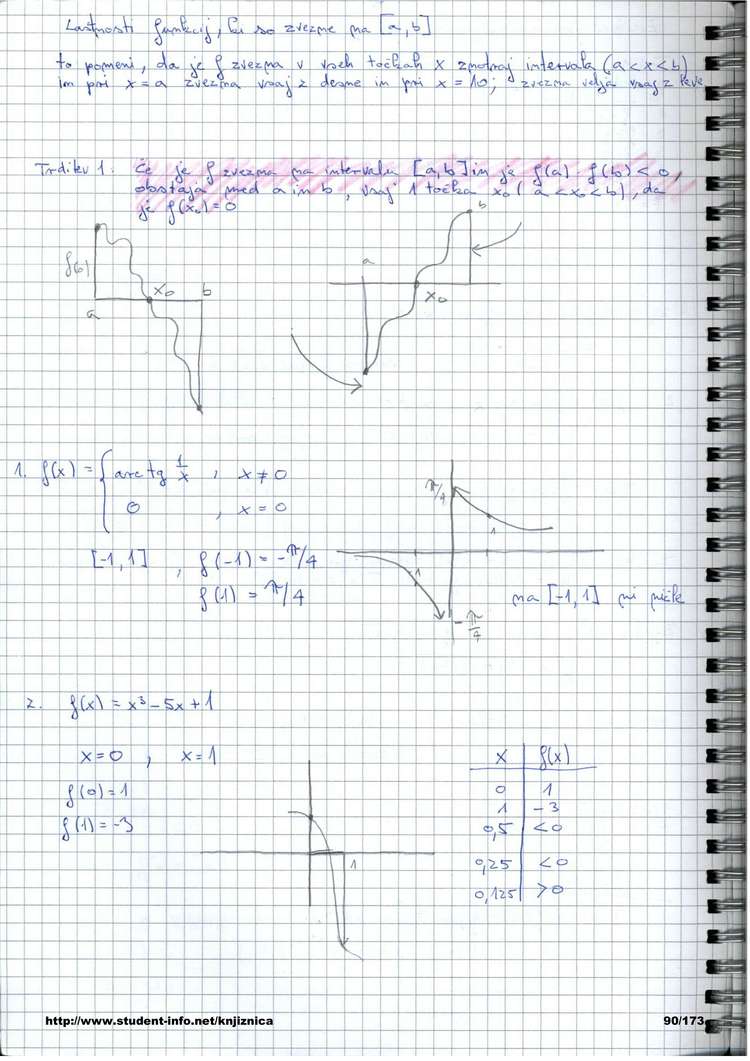 Lastnosti funkcij, ki so zvezne na [a,b]
to pomeni, da je f zvezna v vseh točkah x znotraj intervala (a<x<b)
in pri x=a zvezna vsaj z desne in pri x=10; zvezna velja vsaj z leve
Trditev 1. Če je f zvezna na intervalu [a,b] in je f(a)·f(b)<0,
obstaja med a in b, vsaj 1 točka x₀ (a<x₀<b), da
je f(x₀)=0
b
a
f(a)
x₀ b
x₀
a
1. f(x) = { arctg 1/x , x≠0
0 , x=0
π/4
1
[-1,1] , f(-1) = -π/4
1
f(1) = π/4
na [-1,1] ni ničle
-π/4
2. f(x) = x³-5x+1
x=0 , x=1
x f(x)
f(0)=1
0 1
1 -3
f(1)=-3
0,5 <0
1
0,25 <0
0,125 >0
http://www.student-info.net/knjiznica
90/173